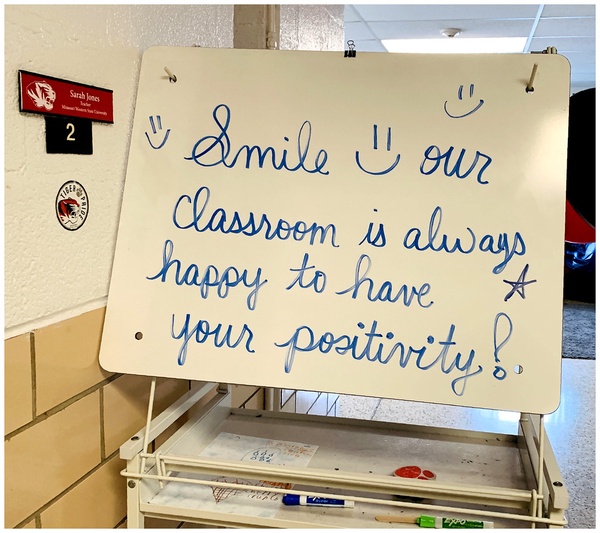 Sarah Jones
Teacher
Missouri Western State University
2
TIGER PRIDE
Smile our
classroom is always
happy to have
your positivity!
EXPO